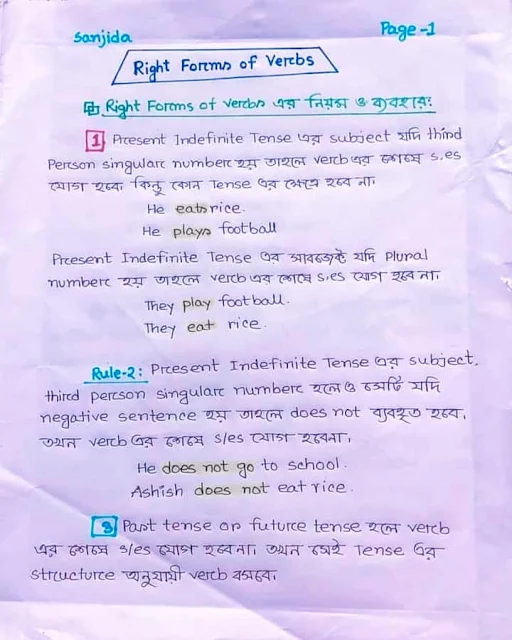 Sanjida
Page -1
Right Forms of Verbs
Right Forms of verbs এর নিয়ম ও ব্যবহার:
1 Present Indefinite Tense এর subject যদি third
Person singular number হয় তাহলে verb এর শেষে s,es
যোগ হবে কিন্তু কোন Tense এর ক্ষেত্রে হবে না।
He eats rice.
He plays football
Present Indefinite Tense এর সাবজেক্ট যদি Plural
number হয় তাহলে verb এর শেষে s,es যোগ হবে না।
They play football.
They eat rice.
Rule-2: Present Indefinite Tense এর subject,
third person singular number হলে ও সেটি যদি
negative sentence হয় তাহলে does not ব্যবহৃত হবে,
তখন verb এর শেষে s/es যোগ হবেনা,
He does not go to school.
Ashish does not eat rice.
3 Past tense or future tense হলে verb
এর শেষে s/es যোগ হবেনা। তখন সেই Tense এর
structure অনুযায়ী verb বসবে।